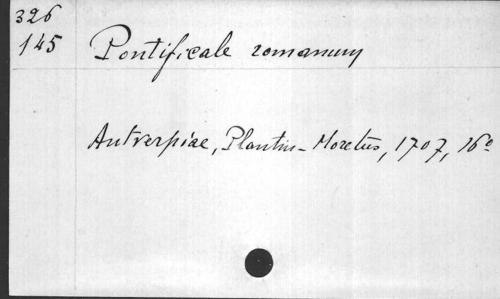 326
145
Pontificale romanum
Antverpiae, Plantin-Moretus, 1707, 16º